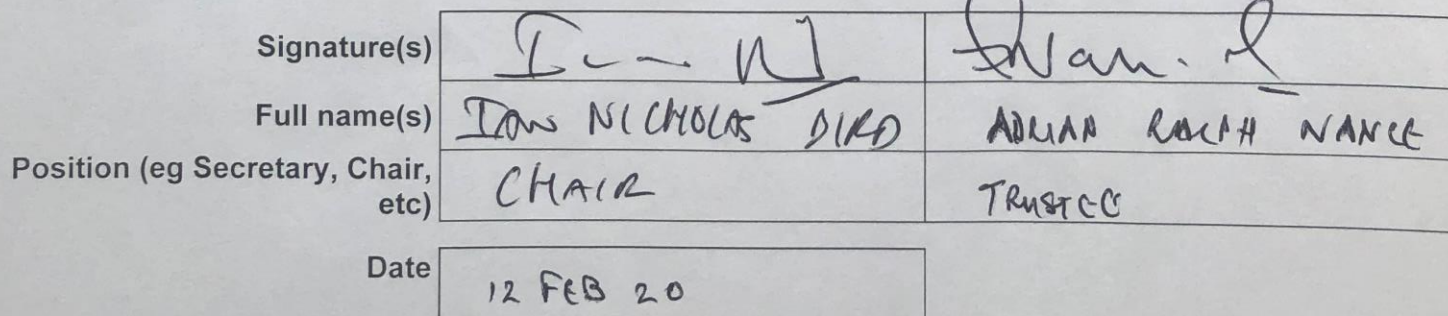 Signature(s)
Full name(s) IAN NICHOLAS BIRD ADRIAN RALPH NANCE
Position (eg Secretary, Chair, etc) CHAIR TRUSTEE
Date 12 FEB 20